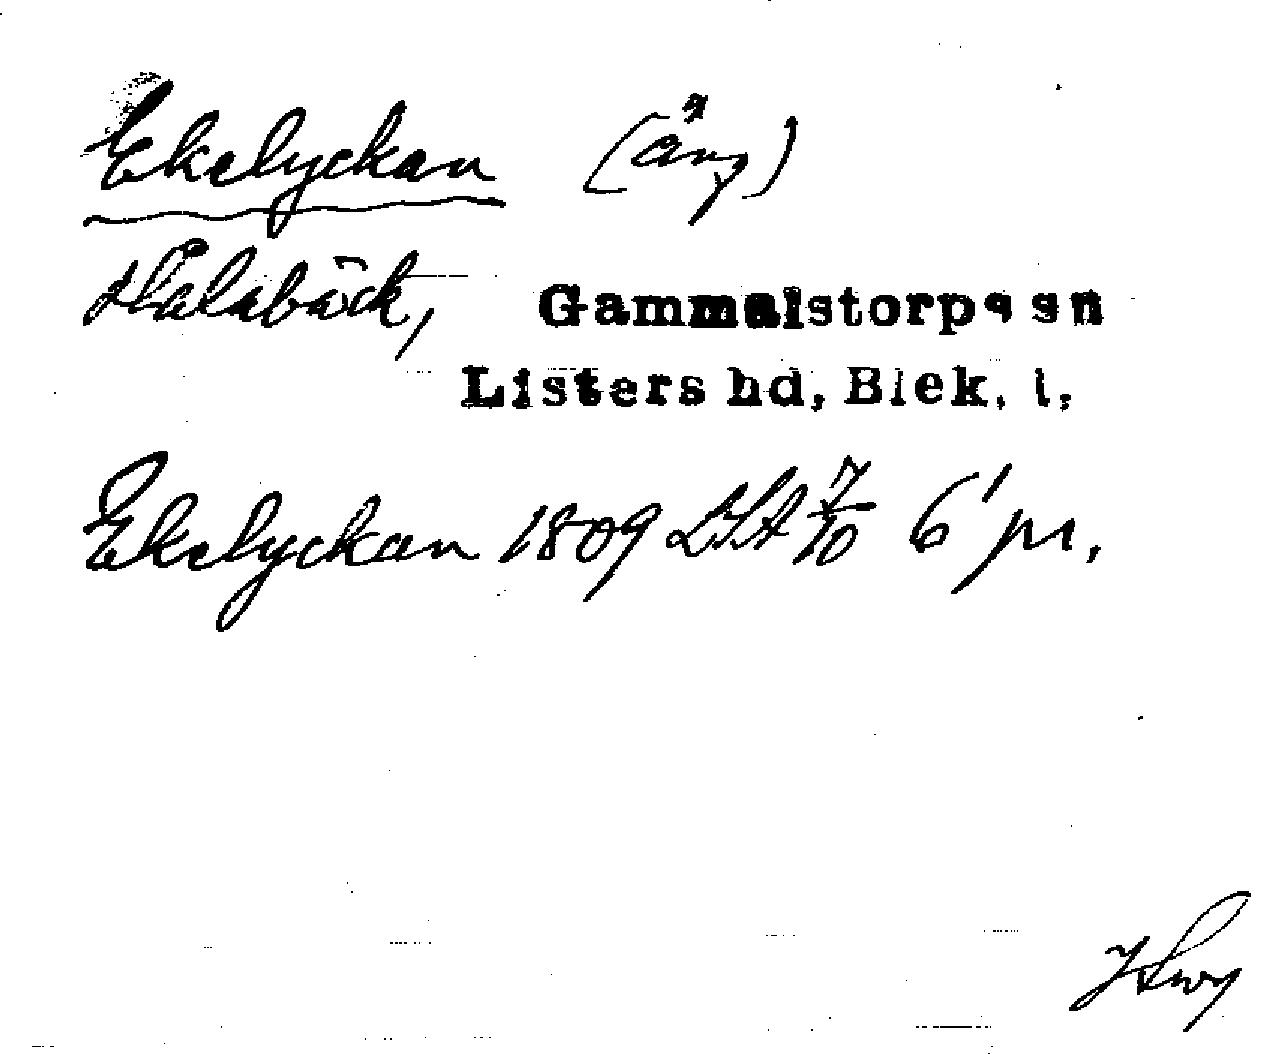 Ekelyckan (äng)
Halabäck, Gammalstorps sn
Listers hd, Blek. l.
Ekelyckan 1809 LSA 7/10 6' pr.